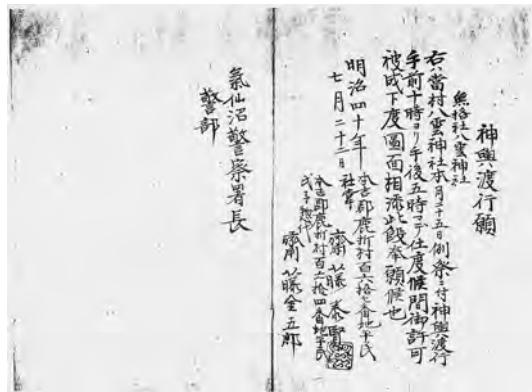 神輿渡行願
無格社八雲神社
右ハ當村八雲神社本月二十五日例祭ニ付神輿渡行
午前十時ヨリ午後五時マデ仕度候間御許可
被成下度圖面相添此段奉願候也
明治四十年
七月二十二日
本吉郡鹿折村百六拾七番地平民
社掌 齋藤泰賢
本吉郡鹿折村百六拾四番地平民
氏子惣代 齋藤金五郎
氣仙沼警察署長
警部